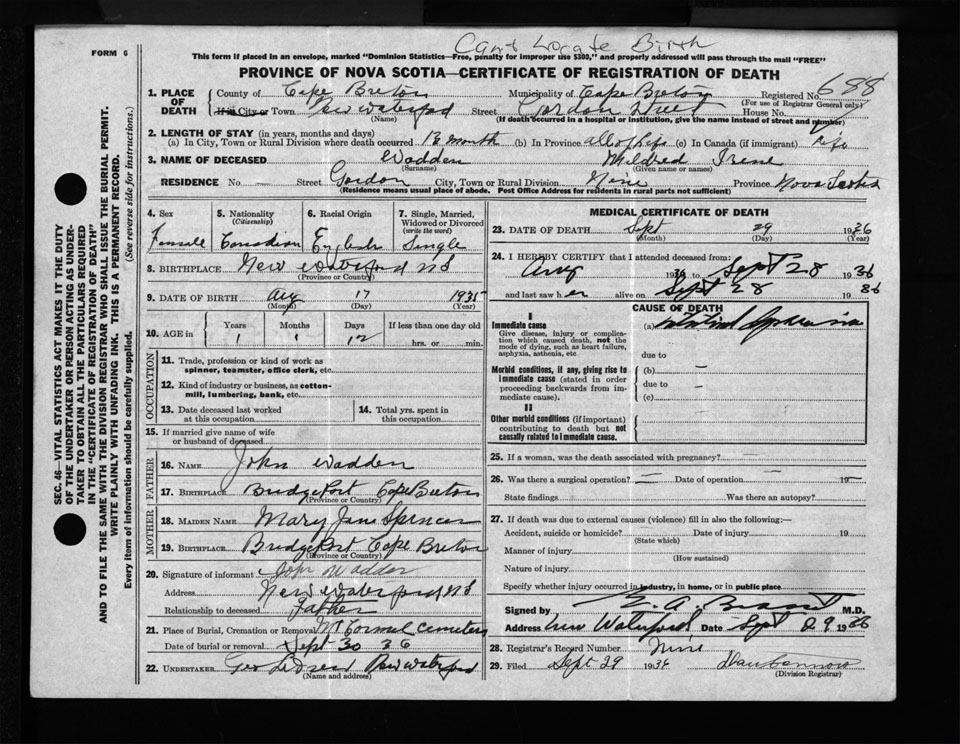 Cant Locate Birth
FORM 6
This form if placed in an envelope, marked "Dominion Statistics—Free, penalty for improper use $300," and properly addressed will pass through the mail "FREE"
PROVINCE OF NOVA SCOTIA—CERTIFICATE OF REGISTRATION OF DEATH
SEC. 46—VITAL STATISTICS ACT MAKES IT THE DUTY
OF THE UNDERTAKER OR PERSON ACTING AS UNDER-
TAKER TO OBTAIN ALL THE PARTICULARS REQUIRED
IN THE "CERTIFICATE OF REGISTRATION OF DEATH"
AND TO FILE THE SAME WITH THE DIVISION REGISTRAR WHO SHALL ISSUE THE BURIAL PERMIT.
WRITE PLAINLY WITH UNFADING INK. THIS IS A PERMANENT RECORD.
Every item of information should be carefully supplied. (See reverse side for instructions.)
1. PLACE OF DEATH County of Cape Breton Municipality of Cape Breton Registered No. 688
(For use of Registrar General only)
If in City or Town New Waterford Street Gordon Street House No.
(Name) (If death occurred in a hospital or institution, give the name instead of street and number)
2. LENGTH OF STAY (in years, months and days)
(a) In City, Town or Rural Division where death occurred 13 month (b) In Province all of life (c) In Canada (if immigrant) life
3. NAME OF DECEASED Wadden Mildred Irene
(Surname) (Given name or names)
RESIDENCE No. — Street Gordon City, Town or Rural Division Nine Province Nova Scotia
(Residence means usual place of abode. Post Office Address for residents in rural parts not sufficient)
4. Sex 5. Nationality (Citizenship) 6. Racial Origin 7. Single, Married, Widowed or Divorced (write the word)
Female Canadian English Single
8. BIRTHPLACE New Waterford NS
(Province or Country)
9. DATE OF BIRTH Aug 17 1935
(Month) (Day) (Year)
10. AGE in Years Months Days If less than one day old
1 1 12 hrs. or min.
OCCUPATION
11. Trade, profession or kind of work as
spinner, teamster, office clerk, etc.
12. Kind of industry or business, as cotton-
mill, lumbering, bank, etc.
13. Date deceased last worked at this occupation 14. Total yrs. spent in this occupation
15. If married give name of wife
or husband of deceased
FATHER
16. NAME John Wadden
17. BIRTHPLACE Bridgeport Cape Breton
(Province or Country)
MOTHER
18. MAIDEN NAME Mary Jane Spencer
19. BIRTHPLACE Bridgeport Cape Breton
(Province or Country)
20. Signature of informant John Wadden
Address New Waterford NS
Relationship to deceased Father
21. Place of Burial, Cremation or Removal Mt Cormel Cemetery
Date of burial or removal Sept 30 36
22. UNDERTAKER Geo New Waterford
(Name and address)
MEDICAL CERTIFICATE OF DEATH
23. DATE OF DEATH Sept 29 1936
(Month) (Day) (Year)
24. I HEREBY CERTIFY that I attended deceased from:
Aug 1936 to Sept 28 1936
and last saw her alive on Sept 28 1936
CAUSE OF DEATH
I
Immediate cause (a)
Give disease, injury or complica-
tion which caused death, not the
mode of dying, such as heart failure,
asphyxia, asthenia, etc.
due to
Morbid conditions, if any, giving rise to (b) —
immediate cause (stated in order due to —
proceeding backwards from im-
mediate cause). (c)
II
Other morbid conditions (if important)
contributing to death but not
causally related to immediate cause.
25. If a woman, was the death associated with pregnancy? —
26. Was there a surgical operation? — Date of operation — 19—
State findings Was there an autopsy?
27. If death was due to external causes (violence) fill in also the following:—
Accident, suicide or homicide? Date of injury 19
(State which)
Manner of injury
(How sustained)
Nature of injury
Specify whether injury occurred in industry, in home, or in public place
Signed by M.D.
Address New Waterford Date Sept 29 1936
28. Registrar's Record Number Nine
29. Filed Sept 29 1936
(Division Registrar)